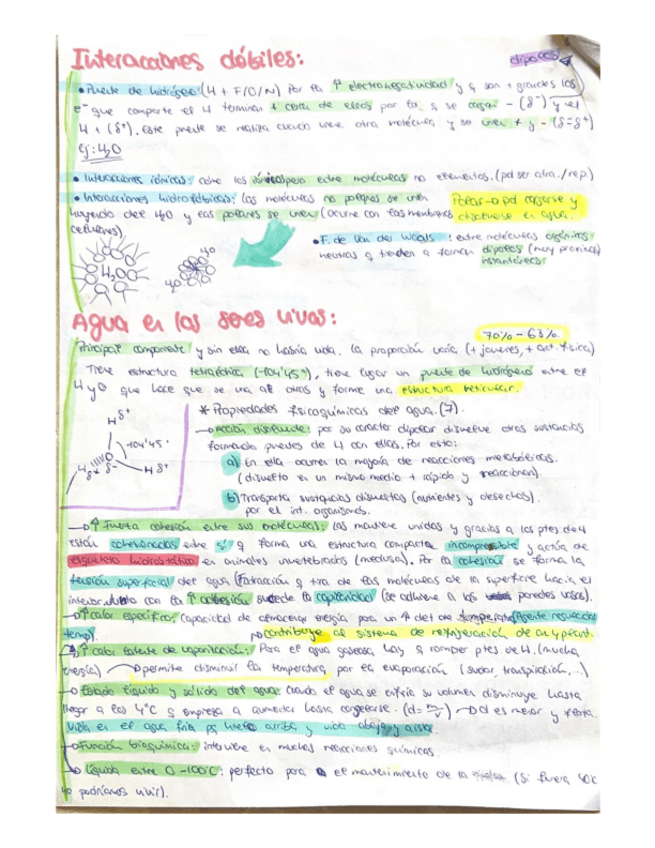 Interacciones débiles:
dipolos
• Puente de hidrógeno: (H + F/O/N) Por la ↑ electronegatividad y q son + grandes los
e⁻ que comparte el H terminan + cerca de ellos por lo q se cargan - (δ⁻) y el
H + (δ⁺). Este puente se realiza cuando viene otra molécula y se unen + y - (δ⁻ δ⁺)
Ej: H₂O
• Interacciones iónicas: como los iónicos pero entre moléculas no elementos. (pd ser atra./rep)
• Interacciones hidrofóbicas: las moléculas no polares se unen
Polar → pd cargarse y
huyendo del H₂O y las polares se unen (ocurre con las membranas
disolverse en agua.
celulares)
• F. de Van der Waals: entre moléculas orgánicas
neutras q tienden a formar dipolos (muy próximas)
instantáneos
H₂O
H₂O
H₂O
Agua en los seres vivos:
70% - 63%
Principal componente y sin ella no habría vida. la proporción varía (+ jóvenes, + act. física)
Tiene estructura tetraédrica (-104'45º), tiene lugar un puente de hidrógeno entre el
H y O que hace que se una al otros y forme una estructura reticular.
* Propiedades fisicoquímicas del agua. (7).
→ Acción disolvente: por su carácter dipolar disuelve otras sustancias
formando puentes de H con ellas. Por esto:
a) En ella ocurren la mayoría de reacciones metabólicas.
(disuelto en un mismo medio + rápido y reaccionan).
b) Transporta sustancias disueltas (nutrientes y desechos).
por el int. organismos.
H δ⁺
104'45º
O
δ⁻
H δ⁺
H δ⁺
→ ↑ Fuerza cohesión entre sus moléculas: las mantiene unidas y gracias a los ptes de H
están cohesionadas entre sí q forma una estructura compacta incompresible y actúa de
esqueleto hidrostático en animales invertebrados (medusa). Por la cohesión se forma la
tensión superficial del agua (F atracción q tira de las moléculas de la superficie hacia el
interior. Junto con la ↑ adhesión sucede la capilaridad (se adhiere a las paredes vasos).
→ ↑ calor específico: capacidad de almacenar energía, para un ↑ det de temperatura (Agente regulador
temp).
→ contribuye al sistema de refrigeración de an. y plant.
→ ↑ calor latente de vaporización: Para el agua gaseosa, hay q romper ptes de H. (mucha
energía) → permite disminuir la temperatura, por la evaporación (sudor, transpiración,...)
→ Estado líquido y sólido del agua: cuando el agua se enfría su volumen disminuye hasta
llegar a los 4ºC q empieza a aumentar hasta congelarse. (d= m/v) → d es menor y flota.
Vida en el agua fría pq hielo arriba y vida abajo y aislar.
→ Función bioquímica: interviene en muchas reacciones químicas.
→ líquida entre 0-100ºC: perfecto para el mantenimiento de la (si fuera 40ºC
no podríamos vivir).